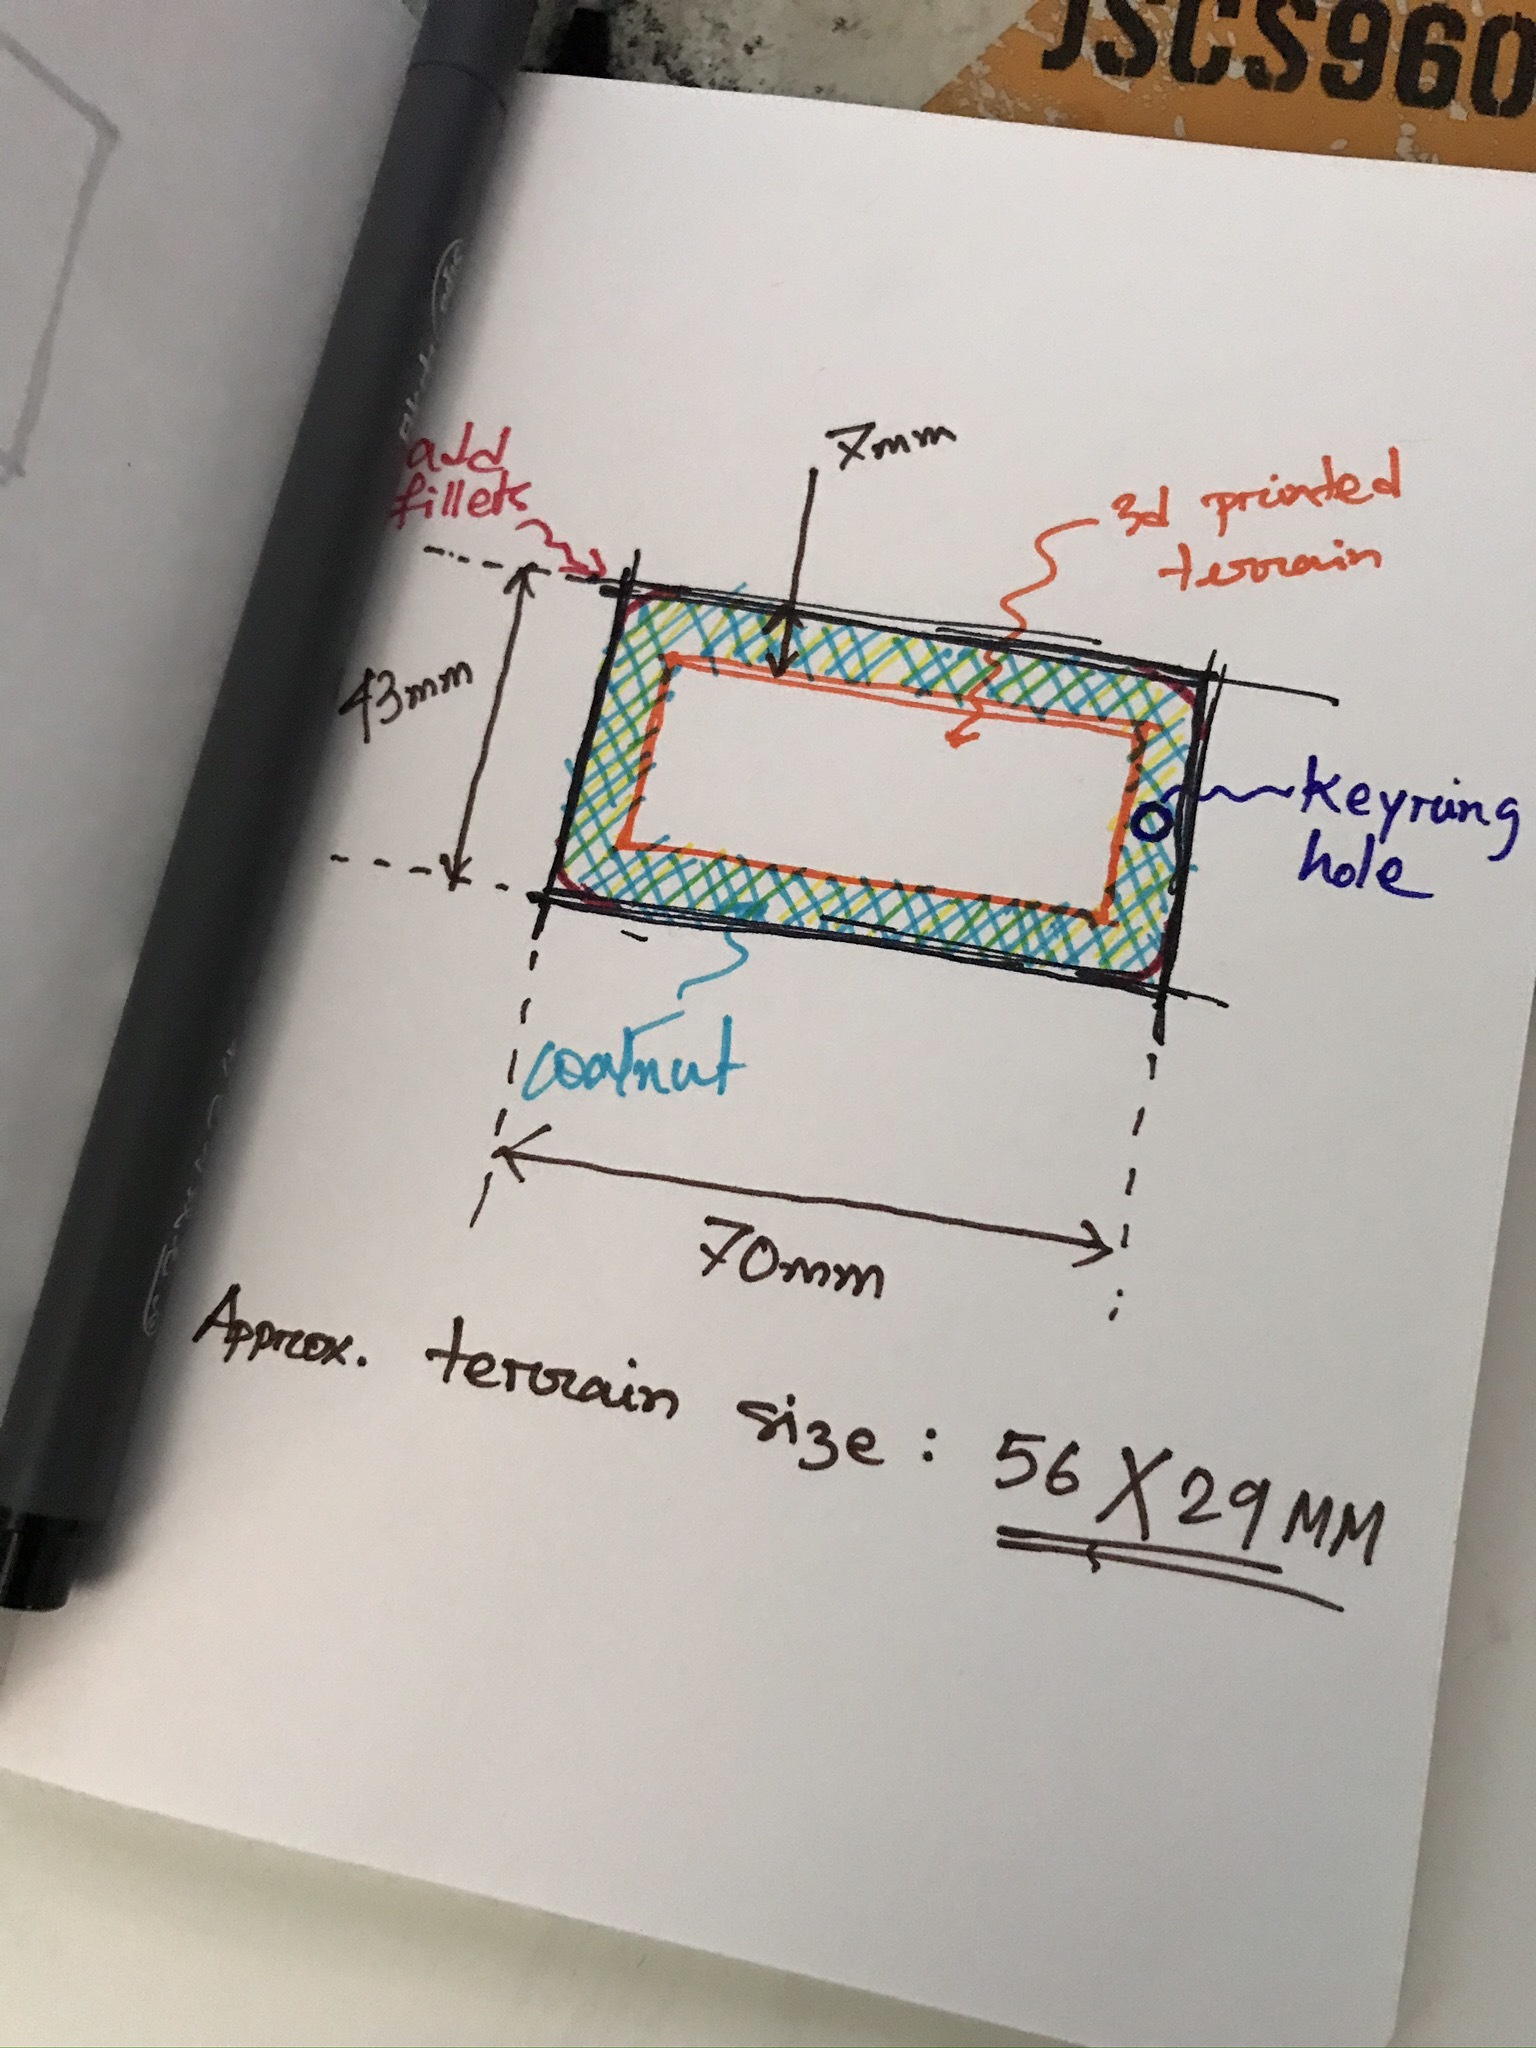 JSCS960
add
fillets
7mm
3d printed
terrain
43mm
Keyring
hole
coatnut
70mm
Approx. terrain size: 56 X 29 MM